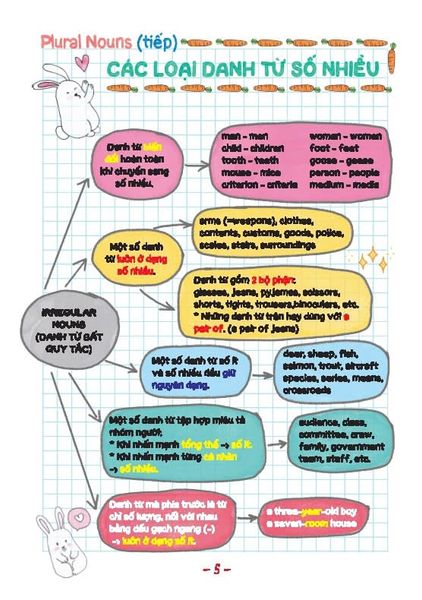 Plural Nouns (tiếp)
CÁC LOẠI DANH TỪ SỐ NHIỀU
Danh từ biến
đổi hoàn toàn
khi chuyển sang
số nhiều.
man - men
child - children
tooth - teeth
mouse - mice
criterion - criteria
woman - women
foot - feet
goose - geese
person - people
medium - media
Một số danh
từ luôn ở dạng
số nhiều.
arms (=weapons), clothes,
contents, customs, goods, police,
scales, stairs, surroundings
Danh từ gồm 2 bộ phận:
glasses, jeans, pyjamas, scissors,
shorts, tights, trousers,binoculars, etc.
* Những danh từ trên hay dùng với a
pair of. (a pair of jeans)
IRREGULAR
NOUNS
(DANH TỪ BẤT
QUY TẮC)
Một số danh từ số ít
và số nhiều đều giữ
nguyên dạng.
deer, sheep, fish,
salmon, trout, aircraft
species, series, means,
crossroads
Một số danh từ tập hợp miêu tả
nhóm người.
* Khi nhấn mạnh tổng thể → số ít.
* Khi nhấn mạnh từng cá nhân
→ số nhiều.
audience, class,
committee, crew,
family, government
team, staff, etc.
Danh từ mà phía trước là từ
chỉ số lượng, nối với nhau
bằng dấu gạch ngang (-)
→ luôn ở dạng số ít.
a three-year-old boy
a seven-room house
- 5 -